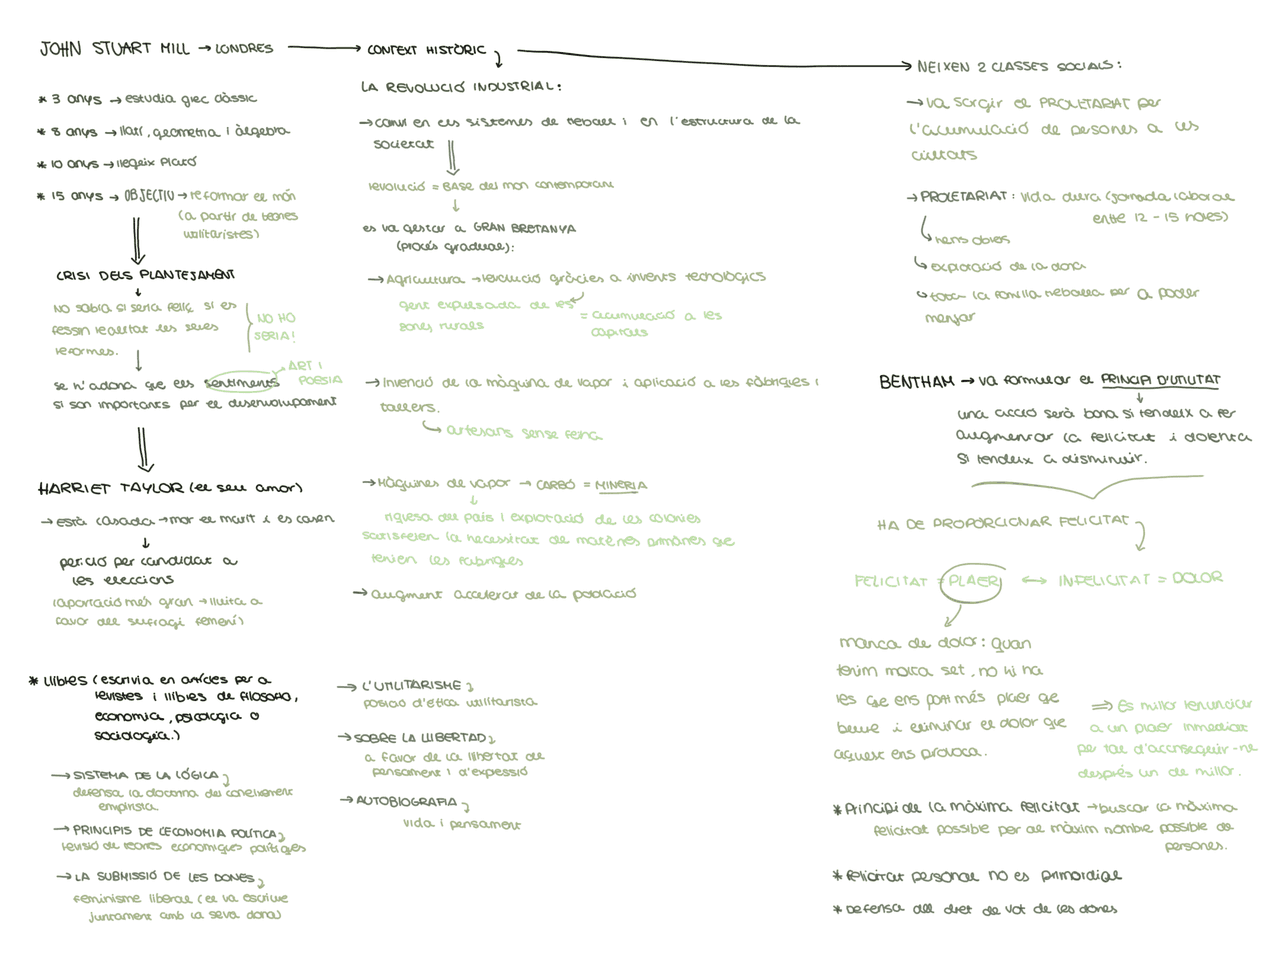 JOHN STUART MILL → LONDRES
* 3 anys → estudia grec clàssic
* 8 anys → llatí, geometria i àlgebra
* 10 anys → llegeix Plató
* 15 anys → OBJECTIU → reformar el món
(a partir de teories
utilitaristes)
CRISI DELS PLANTEJAMENT
No sabia si seria feliç si es
fessin realitat les seves
reformes.
NO HO
SERIA!
se n'adona que els sentiments
si son importants per el desenvolupament
ART I
POESIA
HARRIET TAYLOR (el seu amor)
→ està casada → mor el marit i es casen
petició per candidat a
les eleccions
(aportació més gran → lluita a
favor del sufragi femení)
* Llibres (escrivia en articles per a
revistes i llibres de filosofia,
economia, psicologia o
sociologia.)
→ SISTEMA DE LA LÓGICA
defensa la doctrina del coneixement
empirista
→ PRINCIPIS DE L'ECONOMIA POLÍTICA
revisió de teories econòmiques polítiques
→ LA SUBMISSIÓ DE LES DONES
feminisme liberal (el va escriure
juntament amb la seva dona)
→ L'UTILITARISME
posició d'ètica utilitarista
→ SOBRE LA LLIBERTAD
a favor de la llibertat de
pensament i d'expressió
→ AUTOBIOGRAFIA
vida i pensament
→ CONTEXT HISTÒRIC
LA REVOLUCIÓ INDUSTRIAL:
→ canvi en els sistemes de treball i en l'estructura de la
societat
revolució = BASE del mon contemporani
es va gestar a GRAN BRETANYA
(procés gradual):
→ Agricultura → revolució gràcies a invents tecnològics
gent expulsada de les
zones rurals
= acumulació a les
capitals
→ Invenció de la màquina de vapor i aplicació a les fàbriques i
tallers.
artesans sense feina
→ Màquines de vapor → CARBÓ = MINERIA
riquesa del país i explotació de les colonies
satisfeien la necessitat de matèries primàries que
tenien les fàbriques
→ augment accelerat de la població
→ NEIXEN 2 CLASSES SOCIALS:
→ va sorgir el PROLETARIAT per
l'acumulació de persones a les
ciutats
→ PROLETARIAT: vida dura (jornada laboral
entre 12 - 15 hores)
nens obrers
explotació de la dona
tota la familia treballa per a poder
menjar
BENTHAM → va formular el PRINCIPI D'UTILITAT
una acció serà bona si tendeix a fer
augmentar la felicitat i dolenta
si tendeix a disminuir.
HA DE PROPORCIONAR FELICITAT
FELICITAT = PLAER ↔ INFELICITAT = DOLOR
manca de dolor: quan
tenim molta set, no hi ha
res que ens porti més plaer que
beure i eliminar el dolor que
aquest ens provoca.
⇒ És millor renunciar
a un plaer immediat
per tal d'aconseguir-ne
després un de millor.
* Principi de la màxima felicitat → buscar la màxima
felicitat possible per al màxim nombre possible de
persones.
* felicitat personal no es primordial
* Defensa del dret de vot de les dones